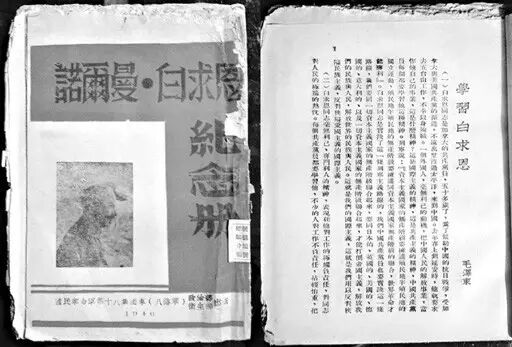 諾爾曼·白求恩
紀念册
國民革命軍第十八集團軍(八路軍)政治部衛生部出版
1940
1
學習白求恩
毛澤東
(一)白求恩同志是加拿大的共產黨員,五十多歲了,爲了幫助中國的抗日戰爭,受加
拿大與美國共產黨的派遣,不遠萬里,來到中國。去年春上到延安時,他就要求
去五台山工作,不幸以身殉職。一個外國人,毫無利己的動機,把中國人民的解放事業,當
作他自己的事業,這是什麼精神?這是國際主義的精神,這是共產主義的精神,中國共產黨
員每個都要學習這種精神。列寧說:資本主義國家的無產階級要擁護殖民地半殖民地的
獨立運動,殖民地半殖民地的無產階級要擁護資本主義國家無產階級的運動,世界革命才
能勝利。白求恩同志是實踐了這一條列寧主義路線的。我們中國共產黨員也要實踐這一條
路線,我們要同一切資本主義國家的無產階級聯合起來,要同日本的,英國的,美國的,德
國的,意大利的,以及一切資本主義國家的無產階級聯合起來,才能打倒帝國主義,解放我
們的民族與人民,解放世界的民族與人民。這就是我們的國際主義,這就是我們用以反對狹
隘民族主義,反對狹隘愛國主義的國際主義。
(二)白求恩同志毫無利己,專門利人的精神,表現在他對工作的極端負責任,對同志
對人民的極端的熱忱。每個共產黨員都要學習他,不少的人對工作不負責任,拈輕怕重,把